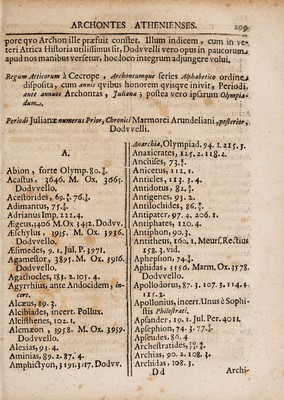 ARCHONTES ATHENIENSES. 209
pore quo Archon ille præfuit constet. Illum indicem, cum in ve-
teri Attica Historia utilissimus sit, Dodvvelli vero opus in paucorum
apud nos manibus versetur, hoc loco integrum adjungere volui.
Regum Atticorum à Cecrope, Archontumque series Alphabetico ordine
disposita, cum annis quibus honorem quisque inivit, Periodi,
ante annuos Archontas, Juliana; postea vero ipsarum Olympia-
dum.
Periodi Julianæ numerus Prior, Chronici Marmorei Arundeliani, posterior,
Dodvvelli.
A.
Abion, forte Olymp. 80.
Acastus, 3646. M. Ox. 3665.
Dodvvello.
Acestorides, 69. 76.
Adimantus, 75.
Adrianus Imp. 222.4.
Ægeus, 3406 M.Ox 3412. Dodvv.
Æschylus, 3935. M. Ox. 3936.
Dodvvello.
Æsimedes, 9.1. Jul. P. 3971.
Agamestor, 3891. M. Ox. 3916.
Dodvvello.
Agathocles, 183. 2. 105. 4.
Agyrrhius, ante Andocidem, in-
cert.
Alcæus, 89. 3.
Alcibiades, incert. Pollux.
Alcisthenes, 102. 1.
Alemæon, 3958. M. Ox. 3959.
Dodvvello.
Alexias, 93. 4.
Aminias, 89. 2. 87. 4
Amphictyon, 3191. 3117. Dodvv.
Anarchia, Olympiad. 94. 1. 215. 3.
Anaxicrates, 125. 2. 118. 2.
Anchises, 73.
Anicetus, 112. 1.
Anticles, 113. 3. 4.
Antidotus, 82.
Antigenes, 93. 2.
Antilochides, 86.
Antipater, 97. 4. 206. 1.
Antiphates, 120. 4.
Antiphon, 90. 3.
Antitheus, 160. 1. Meurs. Rectius
158. 3. vid.
Aphepsion, 74.
Aphidas, 3556. Marm. Ox. 3578.
Dodvvello.
Apollodorus, 87. 3. 107. 3. 114. 4.
115. 2.
Apollonius, incert. Unus è Sophi-
stis Philostrati.
Apsander, 19. 1. Jul. Per. 4011.
Apsephion, 74. 3. 77.
Apseudes. 86. 4
Archestratides,
Archias, 90. 2. 108. 3.
Archidas, 108. 3.
D d Archi-